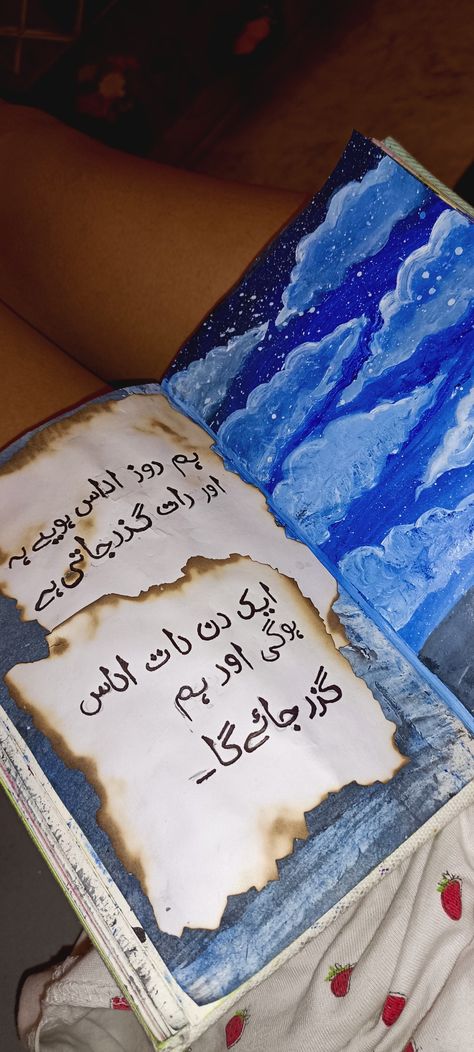 ہم روز اداس ہویے ہے
اور رات گذر جاتی ہے
ایک دن رات اداس
ہوگی اور ہم
گذر جائے گا۔